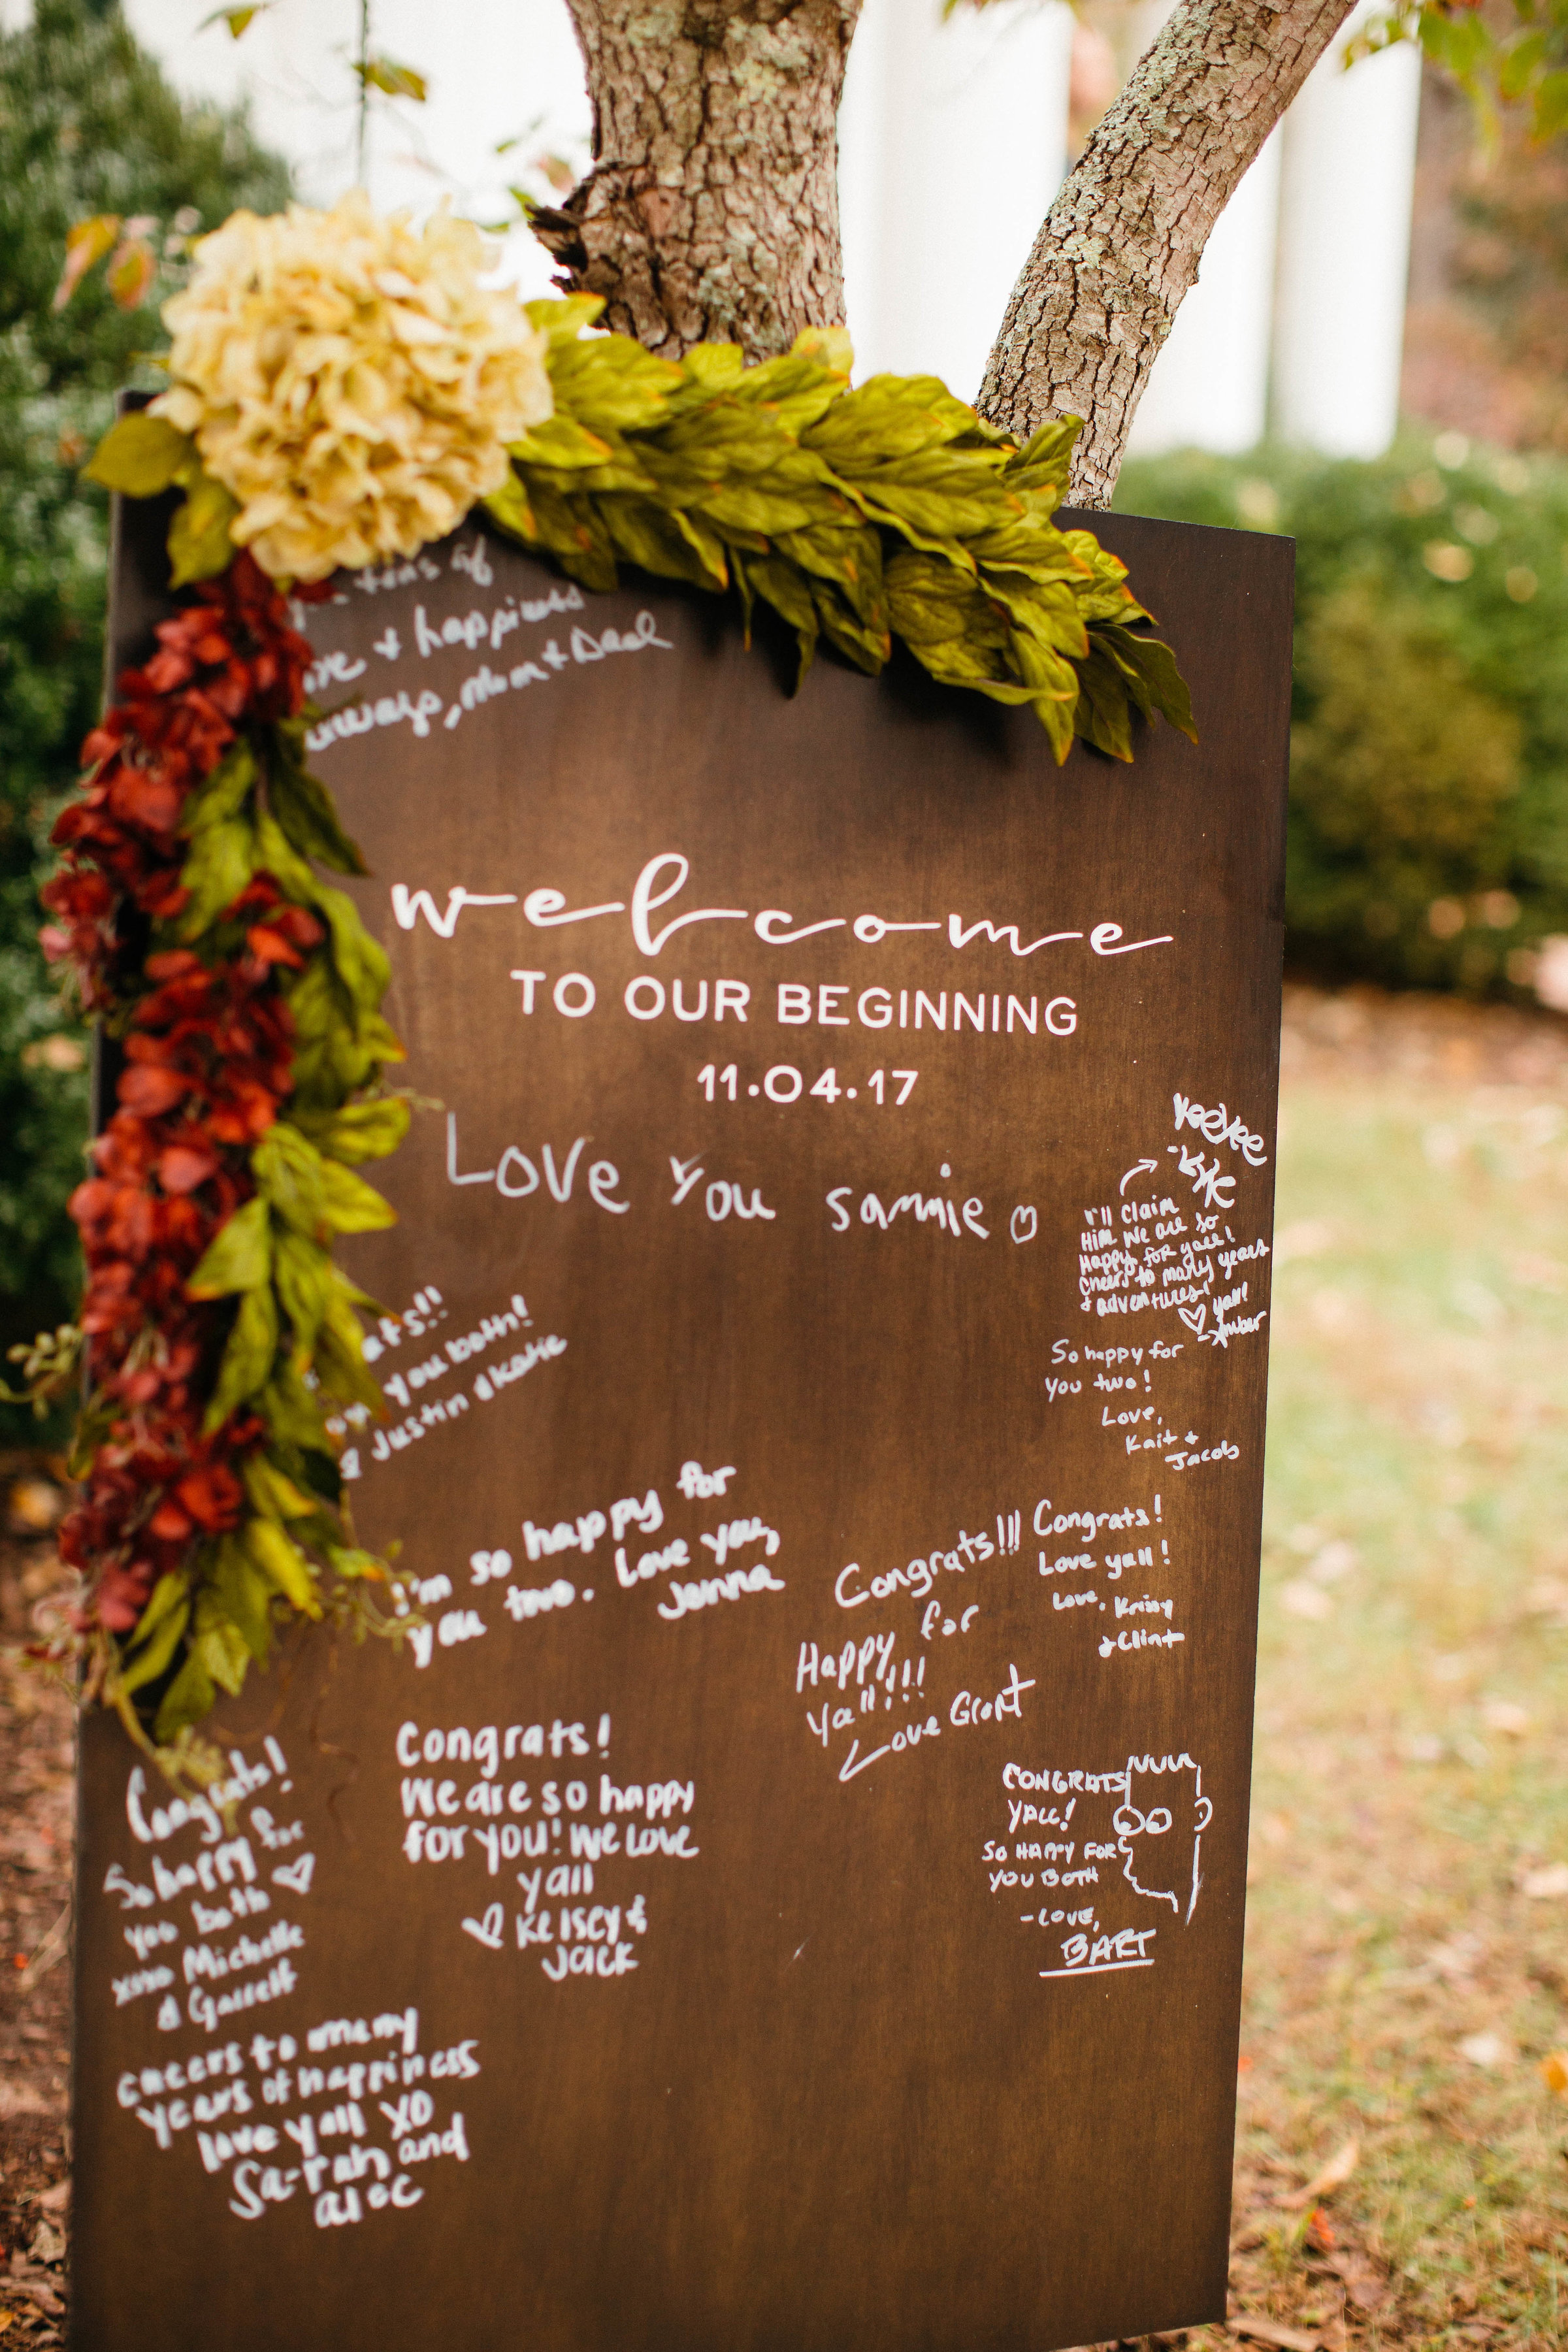 tons of
& happiness
always, Mom & Dad
welcome
TO OUR BEGINNING
11.04.17
Love You Sammie
YeeYee
I'll claim
Him We are so
Happy for yall!
cheers to many years
& adventures!
yall!
-Amber
So happy for
You two!
Love,
Kait +
Jacob
you both!
Justin & Katie
I'm so happy for
you two. Love you,
Jenna
Congrats!!!
Happy for
Ya'll!!!
Love Grant
Congrats!
Love yall!
Love, Krissy
& Clint
Congrats!
So happy for
you both
xoxo Michelle
& Garrett
Congrats!
We are so happy
for you! We love
yall
Kelsey &
Jack
CONGRATS
YALL!
SO HAPPY FOR
YOU BOTH
-LOVE,
BART
cheers to many
years of happiness
love yall XO
Sarah and
alec